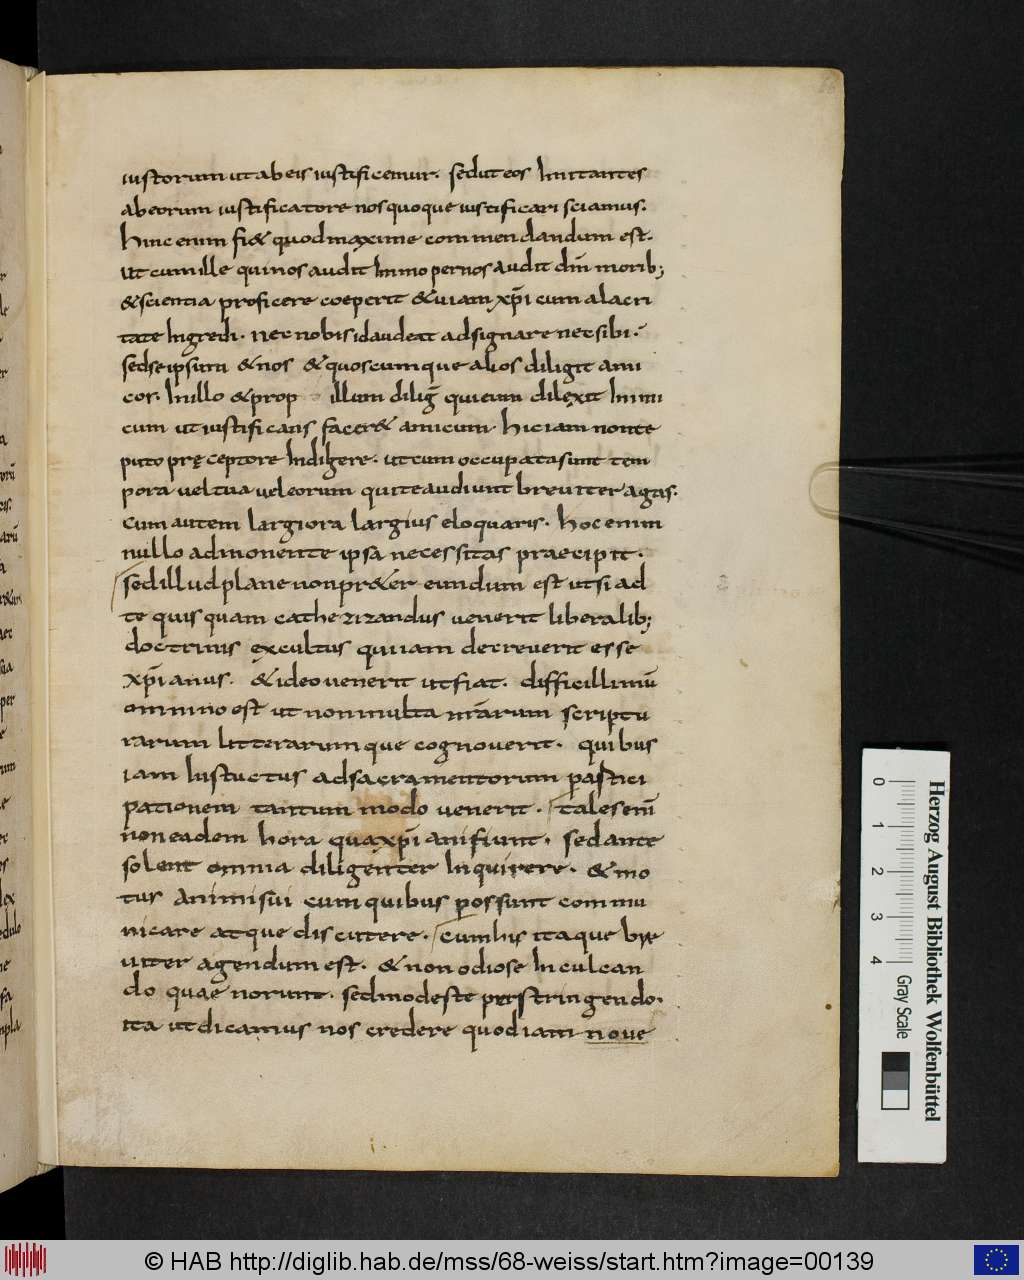 iustorum ut ab eis iustificemur. sed ut eos Imitantes
ab eorum iustificatore nos quoque iustificari sciamus.
hinc enim fi& quod maxime commendandum est.
ut cum ille qui nos audit Immo per nos audit dm̄ morib;
& scientia proficere coeperit & uiam xp̄i cum alacri
tate Ingredi. nec nobis id audeat adsignare nec sibi.
sed se ipsum & nos & quoscumque alios diligit ami
cos. In illo & prop illum diliḡ qui eum dilexit Inimi
cum ut iustificans facer& amicum. hic iam non te
puto pręceptore Indigere. ut cum occupata sunt tem
pora uel tua uel eorum qui te audiunt breuiter agas.
cum autem largiora largius eloquaris. hoc enim
nullo admonente ipsa necessitas praecipit.
sed illud plane non pr&er eundum est ut si ad
te quisquam cathezizandus uenerit liberalib;
doctrinis excultus qui iam decreuerit esse
xp̄ianus. & ideo uenerit ut fiat. difficillimū
omnino est ut non multa nr̄arum scriptu
rarum litterarumque cognouerit. quibus
iam Instructus ad sacramentorum partici
pationem tantum modo uenerit. tales enī
non eadem hora qua xp̄iani fiunt. sed ante
solent omnia diligenter Inquirere. & mo
tus animi sui cum quibus possunt commu
nicare atque discutere. cum his itaque bre
uiter agendum est. & non odiose Inculcan
do quae norunt. sed modeste perstringendo.
ita ut dicamus nos credere quod iam noue
Herzog August Bibliothek Wolfenbüttel
0 1 2 3 4 Gray Scale
© HAB http://diglib.hab.de/mss/68-weiss/start.htm?image=00139